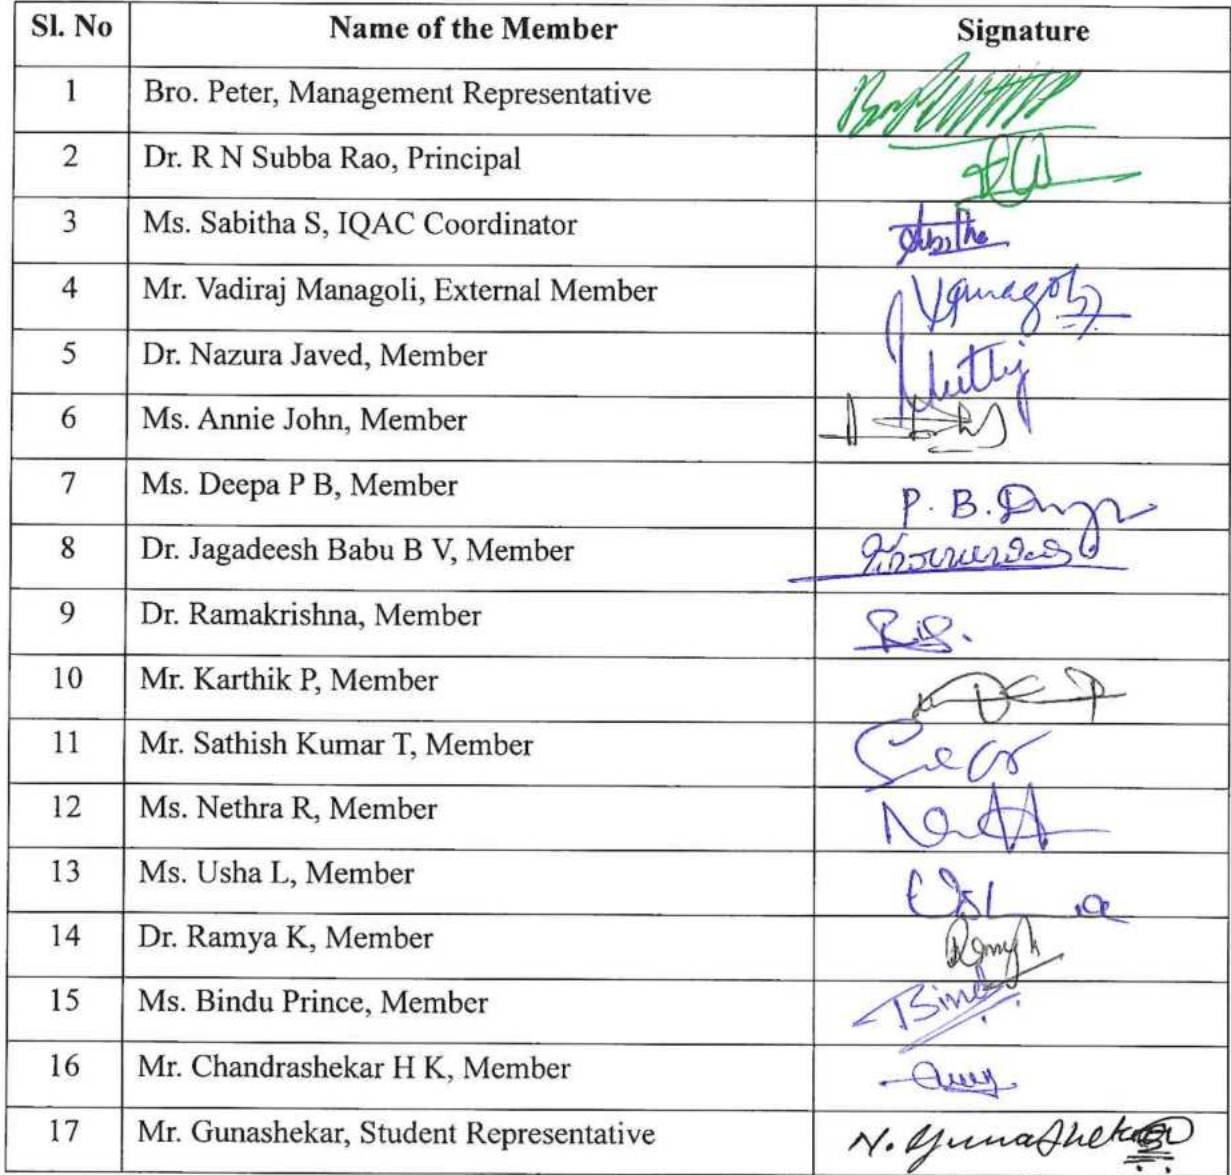 Sl. No Name of the Member Signature
1 Bro. Peter, Management Representative
2 Dr. R N Subba Rao, Principal
3 Ms. Sabitha S, IQAC Coordinator
4 Mr. Vadiraj Managoli, External Member
5 Dr. Nazura Javed, Member
6 Ms. Annie John, Member
7 Ms. Deepa P B, Member P. B.
8 Dr. Jagadeesh Babu B V, Member
9 Dr. Ramakrishna, Member
10 Mr. Karthik P, Member
11 Mr. Sathish Kumar T, Member
12 Ms. Nethra R, Member
13 Ms. Usha L, Member
14 Dr. Ramya K, Member
15 Ms. Bindu Prince, Member
16 Mr. Chandrashekar H K, Member
17 Mr. Gunashekar, Student Representative N. Gunashekar